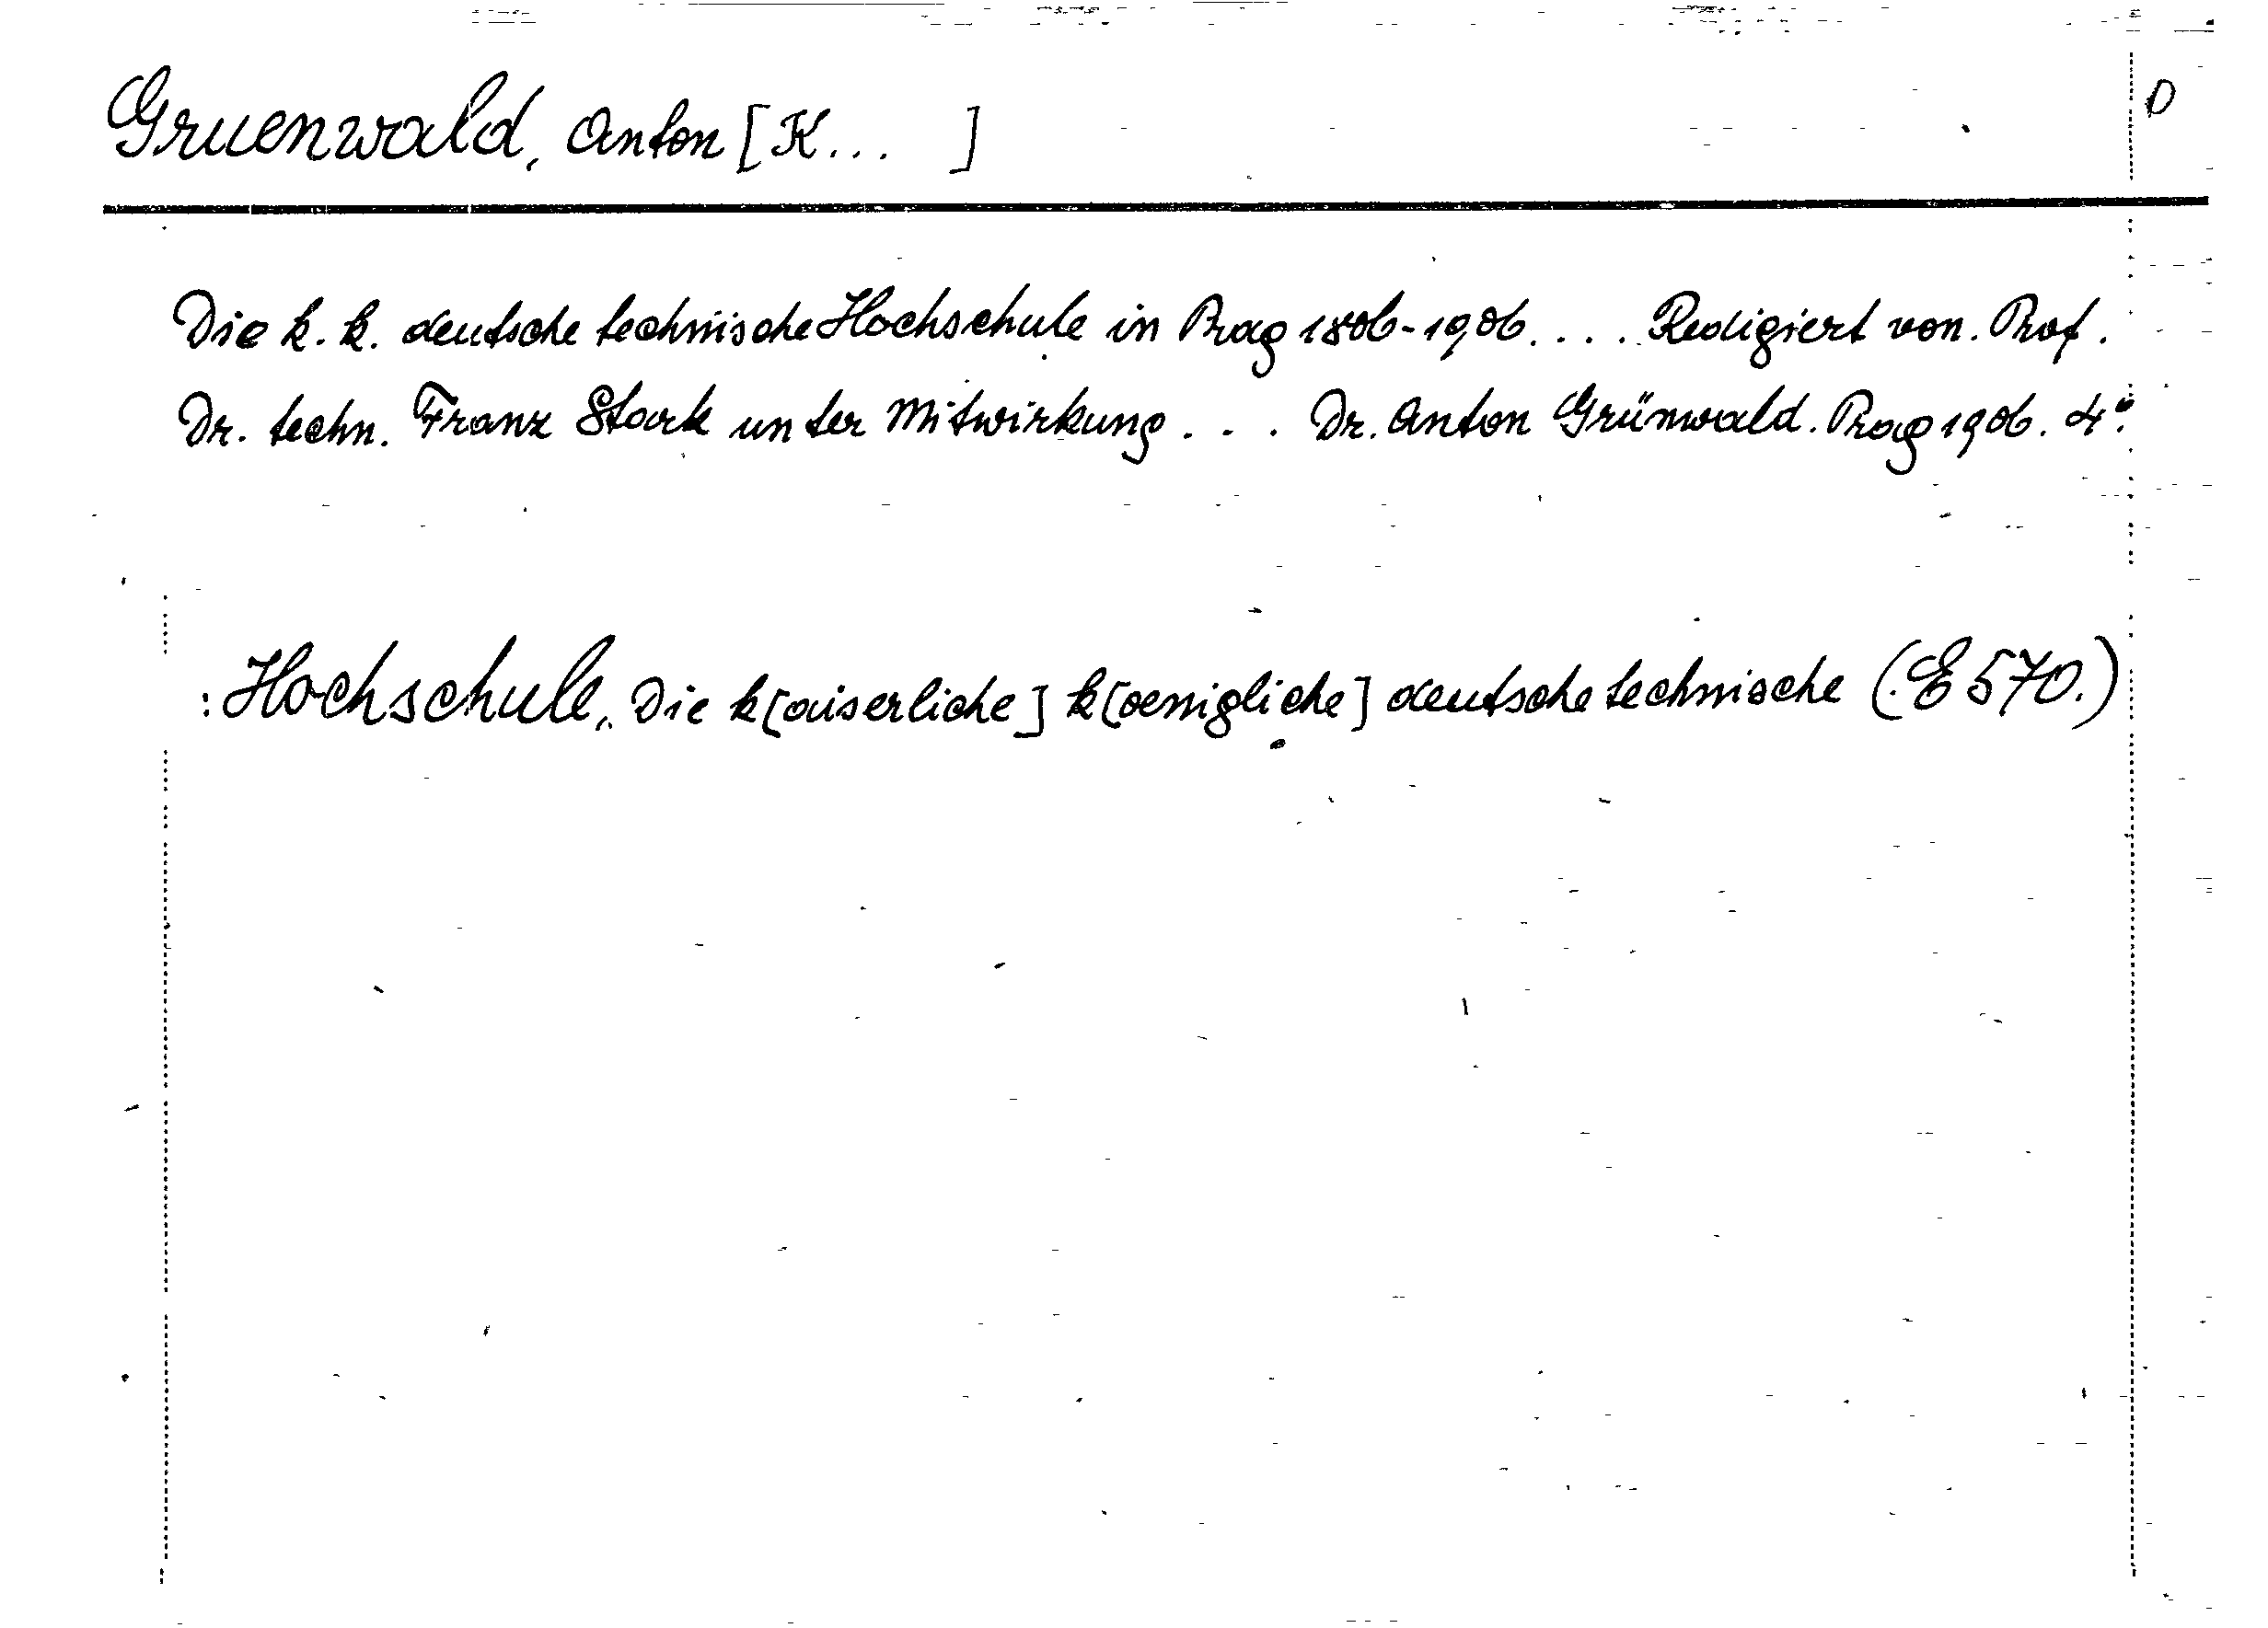 Gruenwald, Anton [K... ]
D
Die k. k. deutsche technische Hochschule in Prag 1806-1906.... Redigiert von. Prof.
Dr. techn. Franz Stark unter Mitwirkung... Dr. Anton Grünwald. Prag 1906. 4°.
: Hochschule, Die k[aiserliche] k[oenigliche] deutsche technische (E 570.)